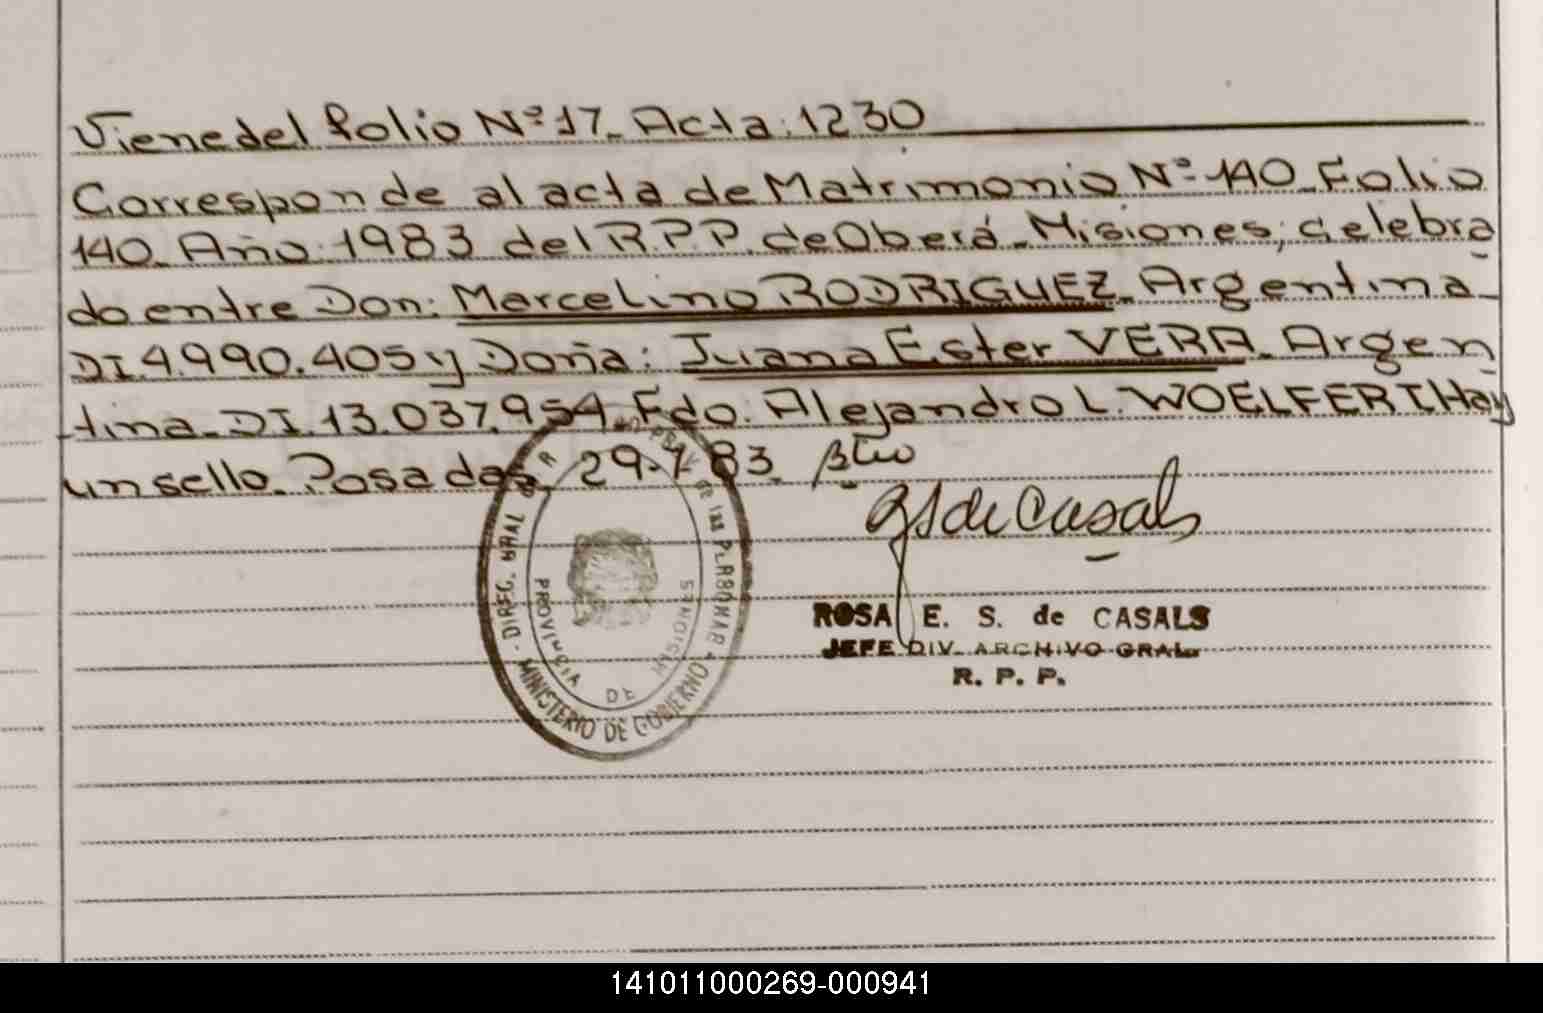 Viene del folio Nº 17. Acta: 1230
Corresponde al acta de Matrimonio Nº 140. Folio
140. Año: 1983 del R.P.P. de Oberá - Misiones; celebra
do entre Don: Marcelino RODRIGUEZ. Argentina -
DI. 4.990.405 y Doña: Juana Ester VERA. Argen
tina. DI. 13.037.954. Fdo. Alejandro L. WOELFERT. Hay
un sello. Posadas, 29-7-83.
de Casals
DIREC. GRAL de las PERSONAS
MINISTERIO DE GOBIERNO
PROVINCIA DE MISIONES
ROSA E. S. de CASALS
JEFE DIV. ARCHIVO GRAL.
R. P. P.
141011000269-000941